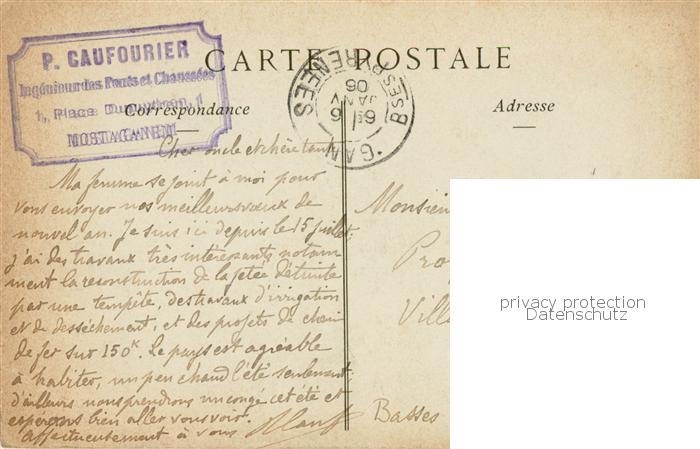 P. CAUFOURIER
Ingénieur des Ponts et Chaussées
1, Place Dupuytren, 1
MOSTAGANEM
CARTE POSTALE
Correspondance
Adresse
GAN
6
JANV
06
BSES PYRENEES
Cher oncle et chère tante
Ma femme se joint à moi pour
vous envoyer nos meilleurs vœux de
nouvel an. Je suis ici depuis le 15 juillet;
j'ai des travaux très intéressants notam
ment la reconstruction de la jetée détruite
par une tempête, des travaux d'irrigation
et de desséchement, et des projets de chemin
de fer sur 150k. Le pays est agréable
à habiter, un peu chaud l'été seulement;
d'ailleurs nous prendrons un congé cet été et
espérons bien aller vous voir.
Affectueusement à vous
Monsieu
Pro
Vill
Basses
privacy protection
Datenschutz